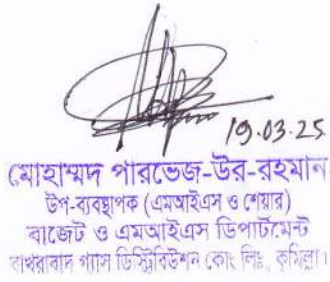 19.03.25
মোহাম্মদ পারভেজ-উর-রহমান
উপ-ব্যবস্থাপক (এমআইএস ও শেয়ার)
বাজেট ও এমআইএস ডিপার্টমেন্ট
বাখরাবাদ গ্যাস ডিস্ট্রিবিউশন কোং লিঃ, কুমিল্লা।